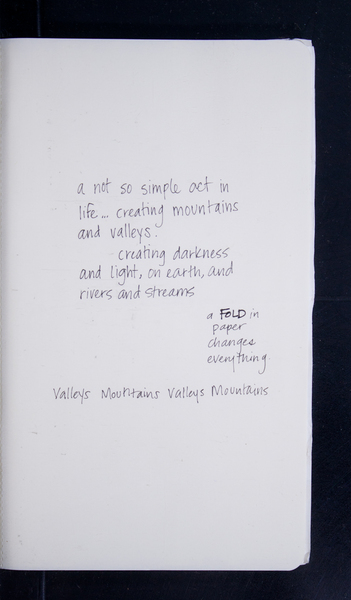 a not so simple act in
life... creating mountains
and valleys.
creating darkness
and light, on earth, and
rivers and streams
a FOLD in
paper
changes
everything.
Valleys Mountains Valleys Mountains